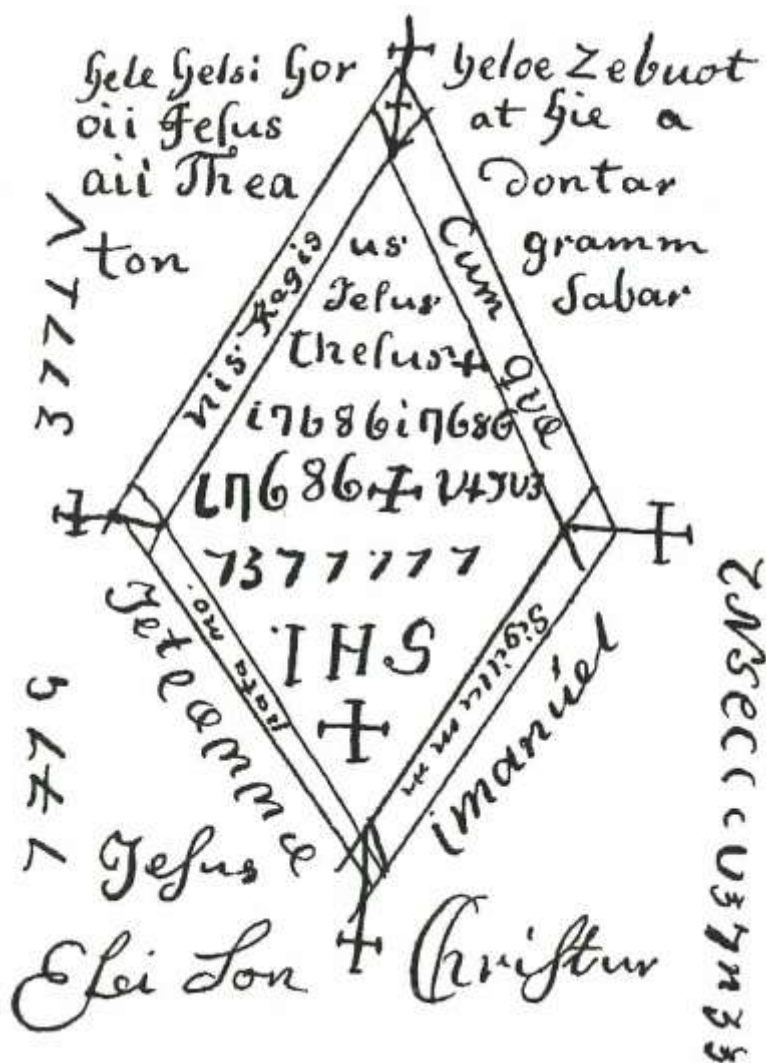 Hele Helsi Hor
oii Jeſus
aii Thea
ton
Heloe Zebuot
at Hie a
dontar
gramm
Sabar
nis Regis
Cum que
us
Jeſus
theſus +
i7686i7686
i7686+
7377777
IHS
pata mo.
Sigillum
imanúel
Jeſus
Elei Son
Chriſtur